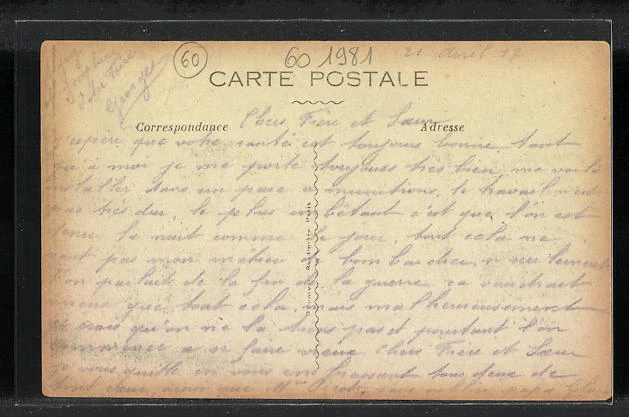 60
60 1981
21 avril 17
CARTE POSTALE
Georges
Correspondance
Adresse
Chers Frère et Sœur
J'espère que votre santé est toujours bonne, tant
qu'à moi je me porte toujours très bien, me voilà
installer dans un parc a munitions, le travail n'est
pas très dur, le plus embêtant c'est que l'on est
tenu la nuit comme le jour, tout cela ne
vaut pas mon métier de bombardier, si seulement
l'on parlait de la fin de la guerre ça vaudrait
mieux que tout cela, mais malheureusement
je crois qu'on ne la tiens pas et pourtant l'on
commence a se faire vieux Chers Frère et Sœur
je vous quitte en vous embrassant tous deux de
tout cœur, ainsi que